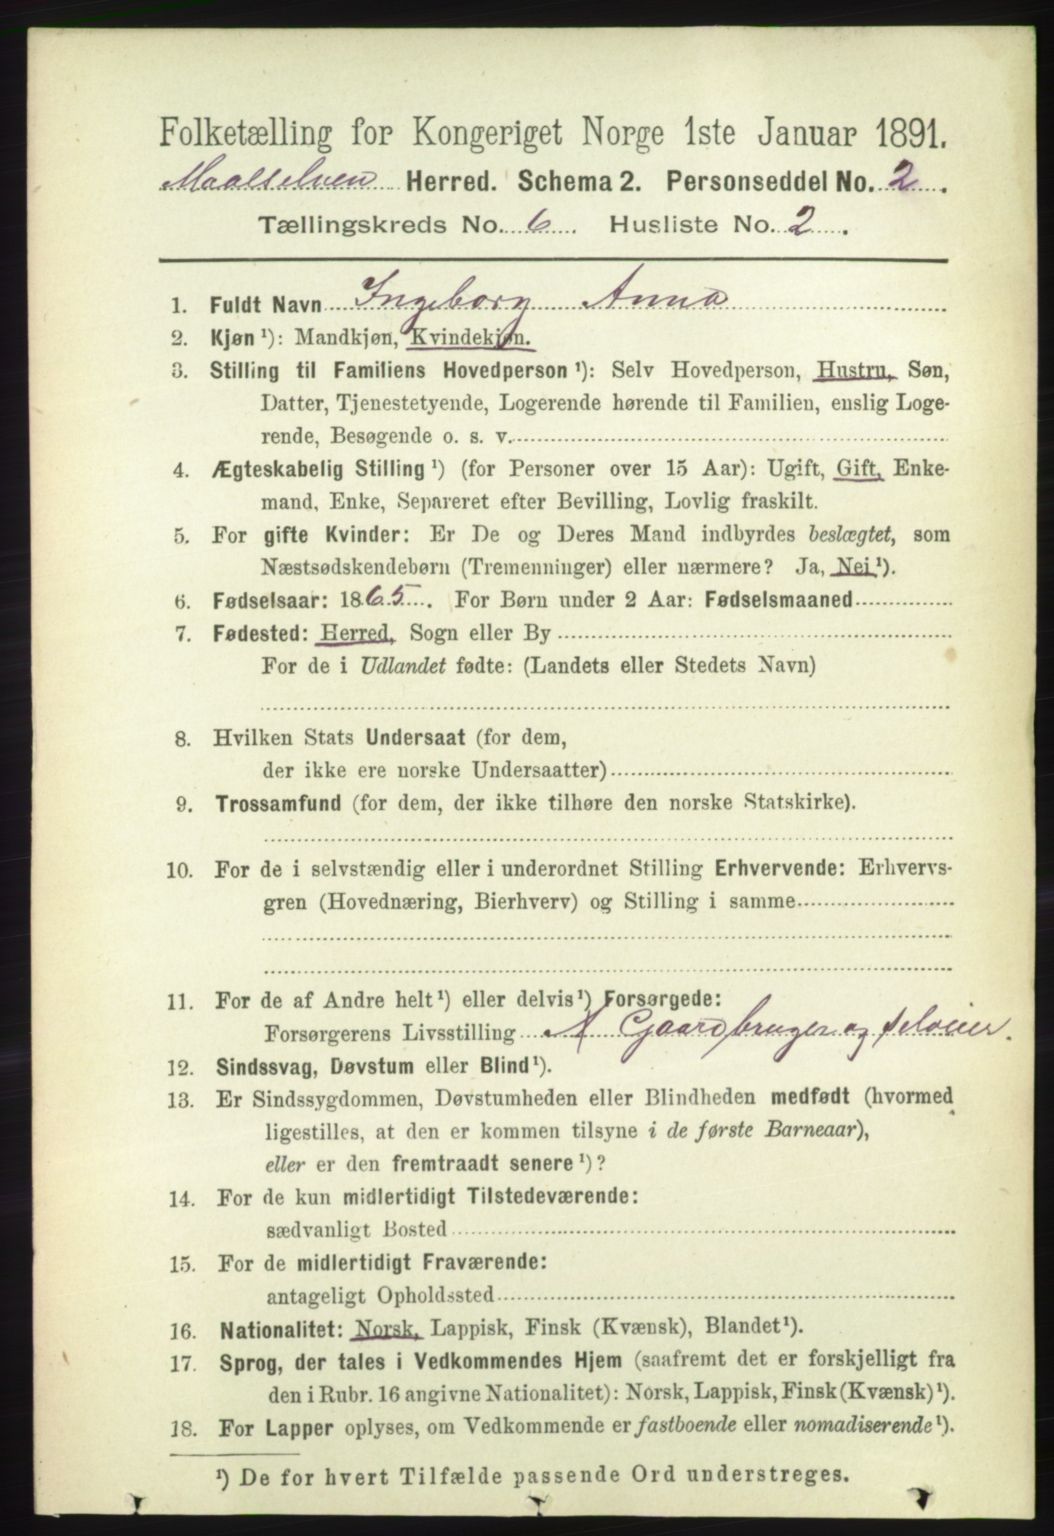 Folketælling for Kongeriget Norge 1ste Januar 1891.
Maalselven Herred. Schema 2. Personseddel No. 2.
Tællingskreds No. 6. Husliste No. 2.
1. Fuldt Navn Ingeborg Anna
2. Kjøn ¹): Mandkjøn, Kvindekjøn.
3. Stilling til Familiens Hovedperson ¹): Selv Hovedperson, Hustru, Søn,
Datter, Tjenestetyende, Logerende hørende til Familien, enslig Loge-
rende, Besøgende o. s. v.
4. Ægteskabelig Stilling ¹) (for Personer over 15 Aar): Ugift, Gift, Enke-
mand, Enke, Separeret efter Bevilling, Lovlig fraskilt.
5. For gifte Kvinder: Er De og Deres Mand indbyrdes beslægtet, som
Næstsødskendebørn (Tremenninger) eller nærmere? Ja, Nei ¹).
6. Fødselsaar: 1865. For Børn under 2 Aar: Fødselsmaaned
7. Fødested: Herred, Sogn eller By
For de i Udlandet fødte: (Landets eller Stedets Navn)
8. Hvilken Stats Undersaat (for dem,
der ikke ere norske Undersaatter)
9. Trossamfund (for dem, der ikke tilhøre den norske Statskirke).
10. For de i selvstændig eller i underordnet Stilling Erhvervende: Erhvervs-
gren (Hovednæring, Bierhverv) og Stilling i samme
11. For de af Andre helt ¹) eller delvis ¹) Forsørgede:
Forsørgerens Livsstilling Gaardbruger og selveier.
12. Sindssvag, Døvstum eller Blind ¹).
13. Er Sindssygdommen, Døvstumheden eller Blindheden medfødt (hvormed
ligestilles, at den er kommen tilsyne i de første Barneaar),
eller er den fremtraadt senere ¹)?
14. For de kun midlertidigt Tilstedeværende:
sædvanligt Bosted
15. For de midlertidigt Fraværende:
antageligt Opholdssted
16. Nationalitet: Norsk, Lappisk, Finsk (Kvænsk), Blandet ¹).
17. Sprog, der tales i Vedkommendes Hjem (saafremt det er forskjelligt fra
den i Rubr. 16 angivne Nationalitet): Norsk, Lappisk, Finsk (Kvænsk) ¹).
18. For Lapper oplyses, om Vedkommende er fastboende eller nomadiserende ¹).
¹) De for hvert Tilfælde passende Ord understreges.